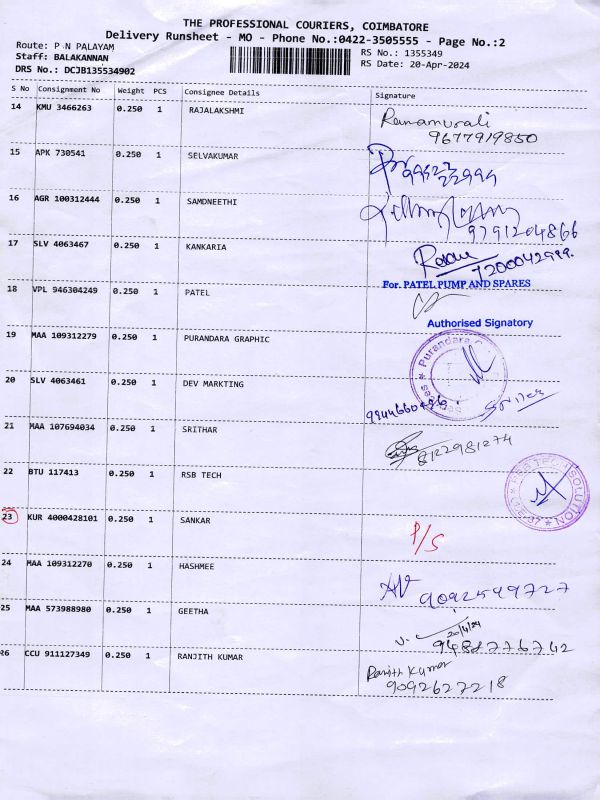 THE PROFESSIONAL COURIERS, COIMBATORE
Delivery Runsheet - MO - Phone No.:0422-3505555 - Page No.:2
Route: P N PALAYAM
RS No.: 1355349
Staff: BALAKANNAN
RS Date: 20-Apr-2024
DRS No.: DCJB135534902
S No Consignment No Weight PCS Consignee Details Signature
14 KMU 3466263 0.250 1 RAJALAKSHMI
Ramamurali
9677919850
15 APK 730541 0.250 1 SELVAKUMAR
16 AGR 100312444 0.250 1 SAMDNEETHI
9791204866
17 SLV 4063467 0.250 1 KANKARIA
7200042999.
For. PATEL PUMP AND SPARES
18 VPL 946304249 0.250 1 PATEL
Authorised Signatory
19 MAA 109312279 0.250 1 PURANDARA GRAPHIC
20 SLV 4063461 0.250 1 DEV MARKTING
21 MAA 107694034 0.250 1 SRITHAR
8122981274
22 BTU 117413 0.250 1 RSB TECH
RSB TECH SOLUTION
23 KUR 4000428101 0.250 1 SANKAR P/S
24 MAA 109312270 0.250 1 HASHMEE
9092549727
25 MAA 573988980 0.250 1 GEETHA
20/4/24
9488776742
26 CCU 911127349 0.250 1 RANJITH KUMAR
Ranjith Kumar
9092627218